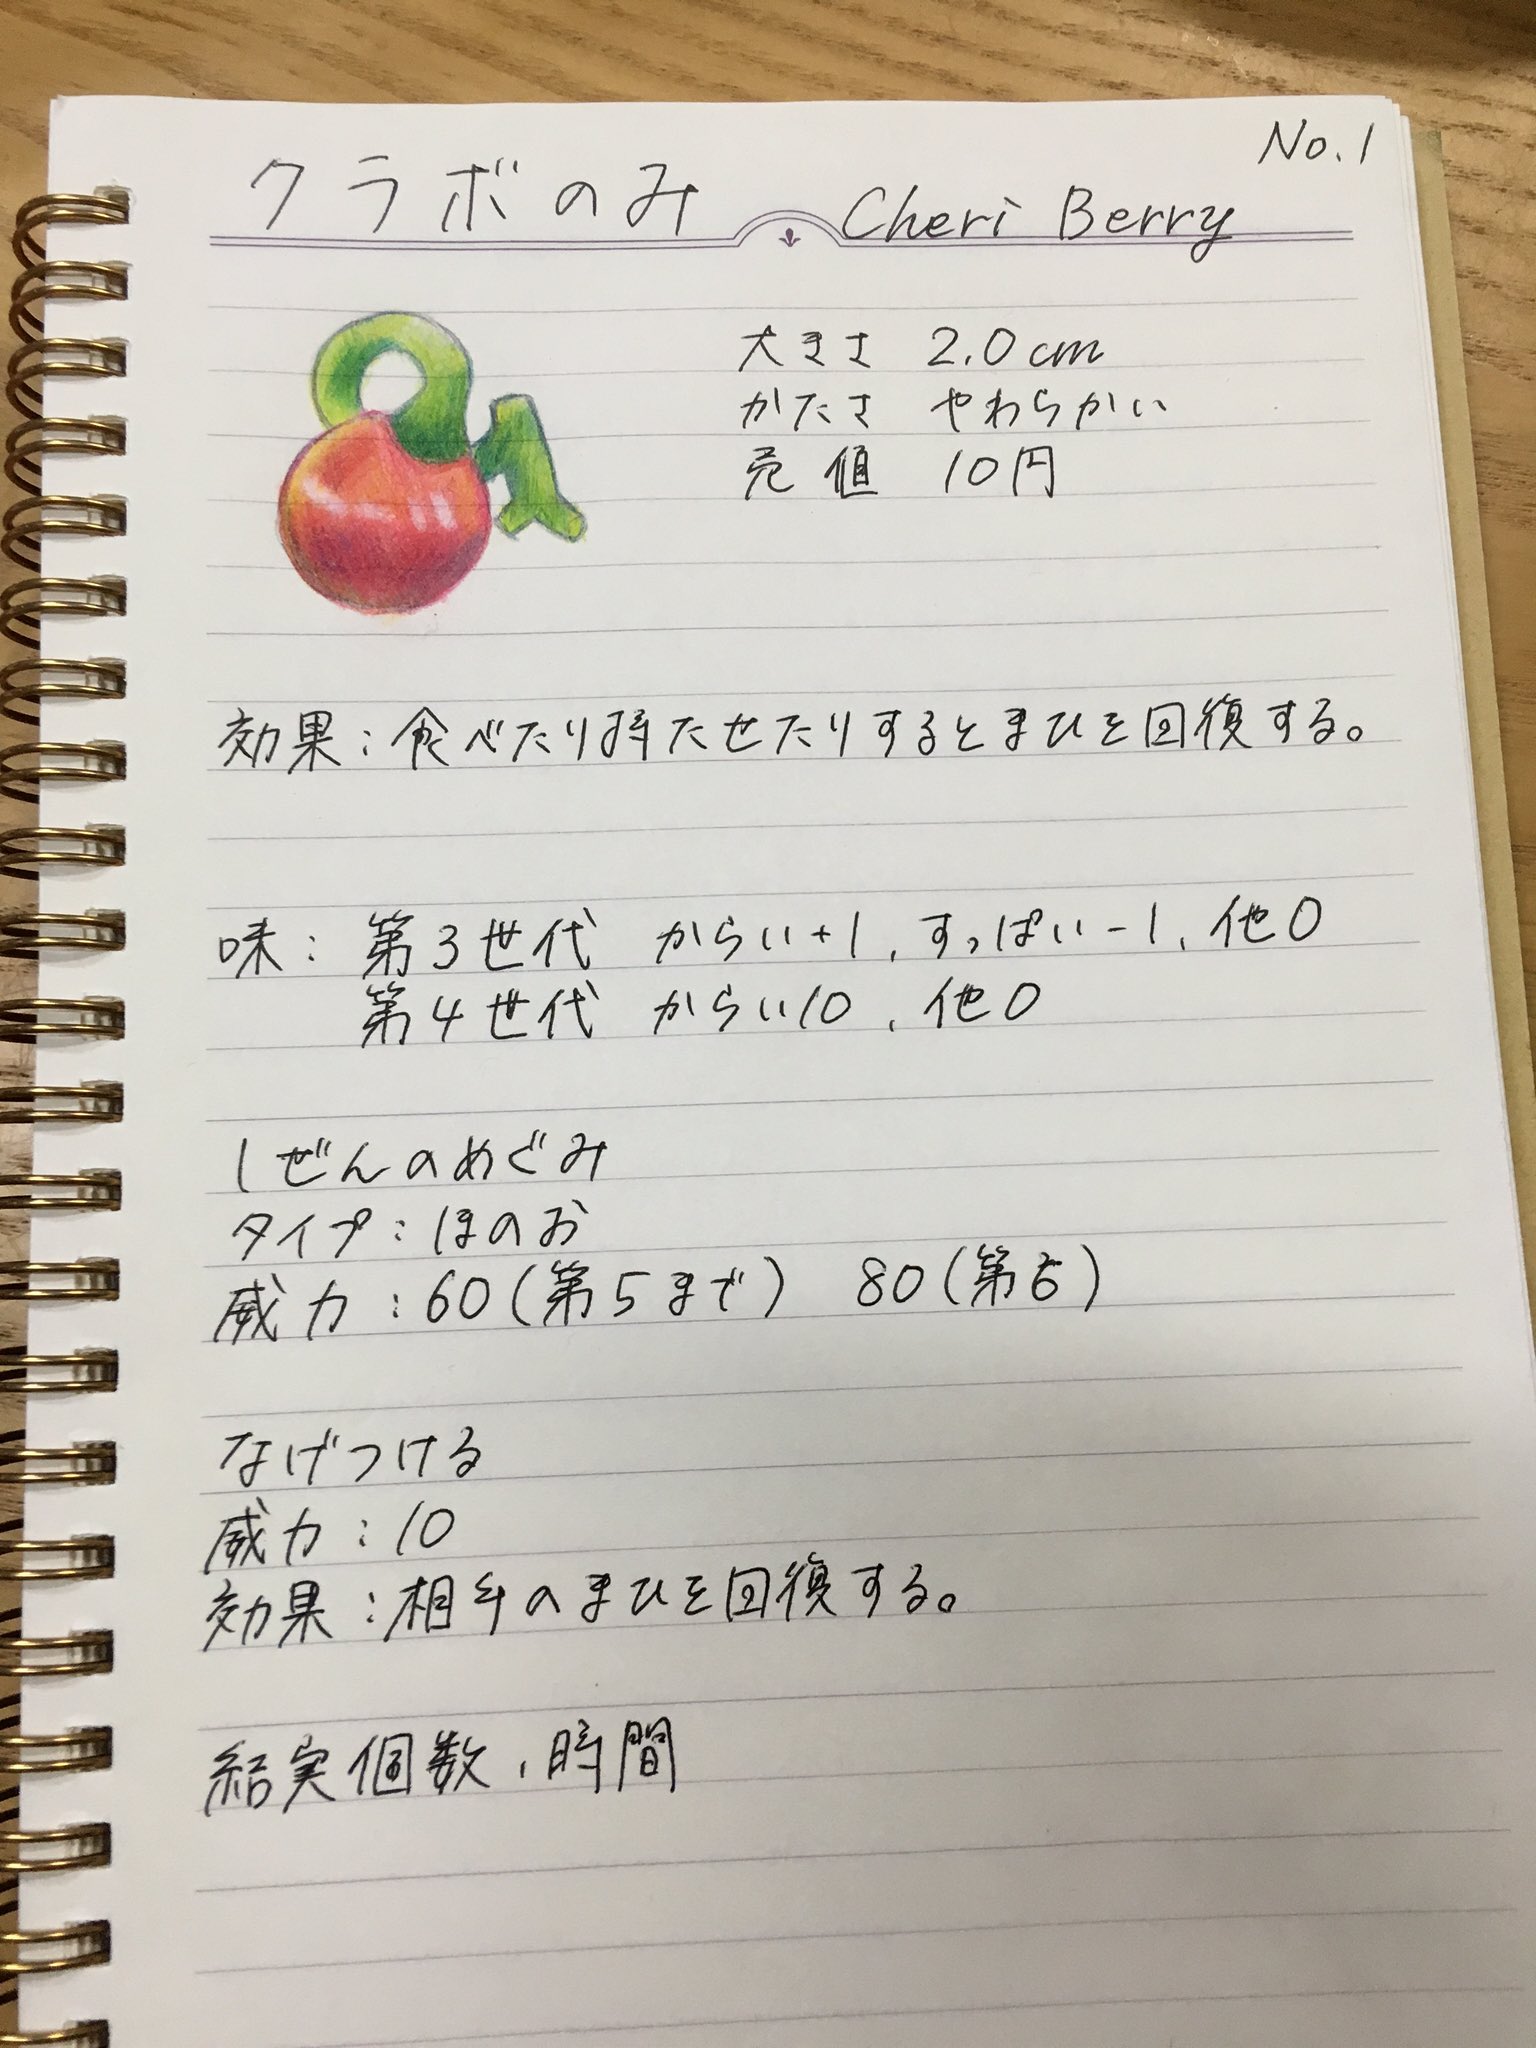 No.1
クラボのみ Cheri Berry
大きさ 2.0cm
かたさ やわらかい
売値 10円
効果:食べたり持たせたりするとまひを回復する。
味:第3世代 からい+1、すっぱい-1、他0
第4世代 からい10、他0
しぜんのめぐみ
タイプ:ほのお
威力:60(第5まで) 80(第6)
なげつける
威力:10
効果:相手のまひを回復する。
結実個数、時間